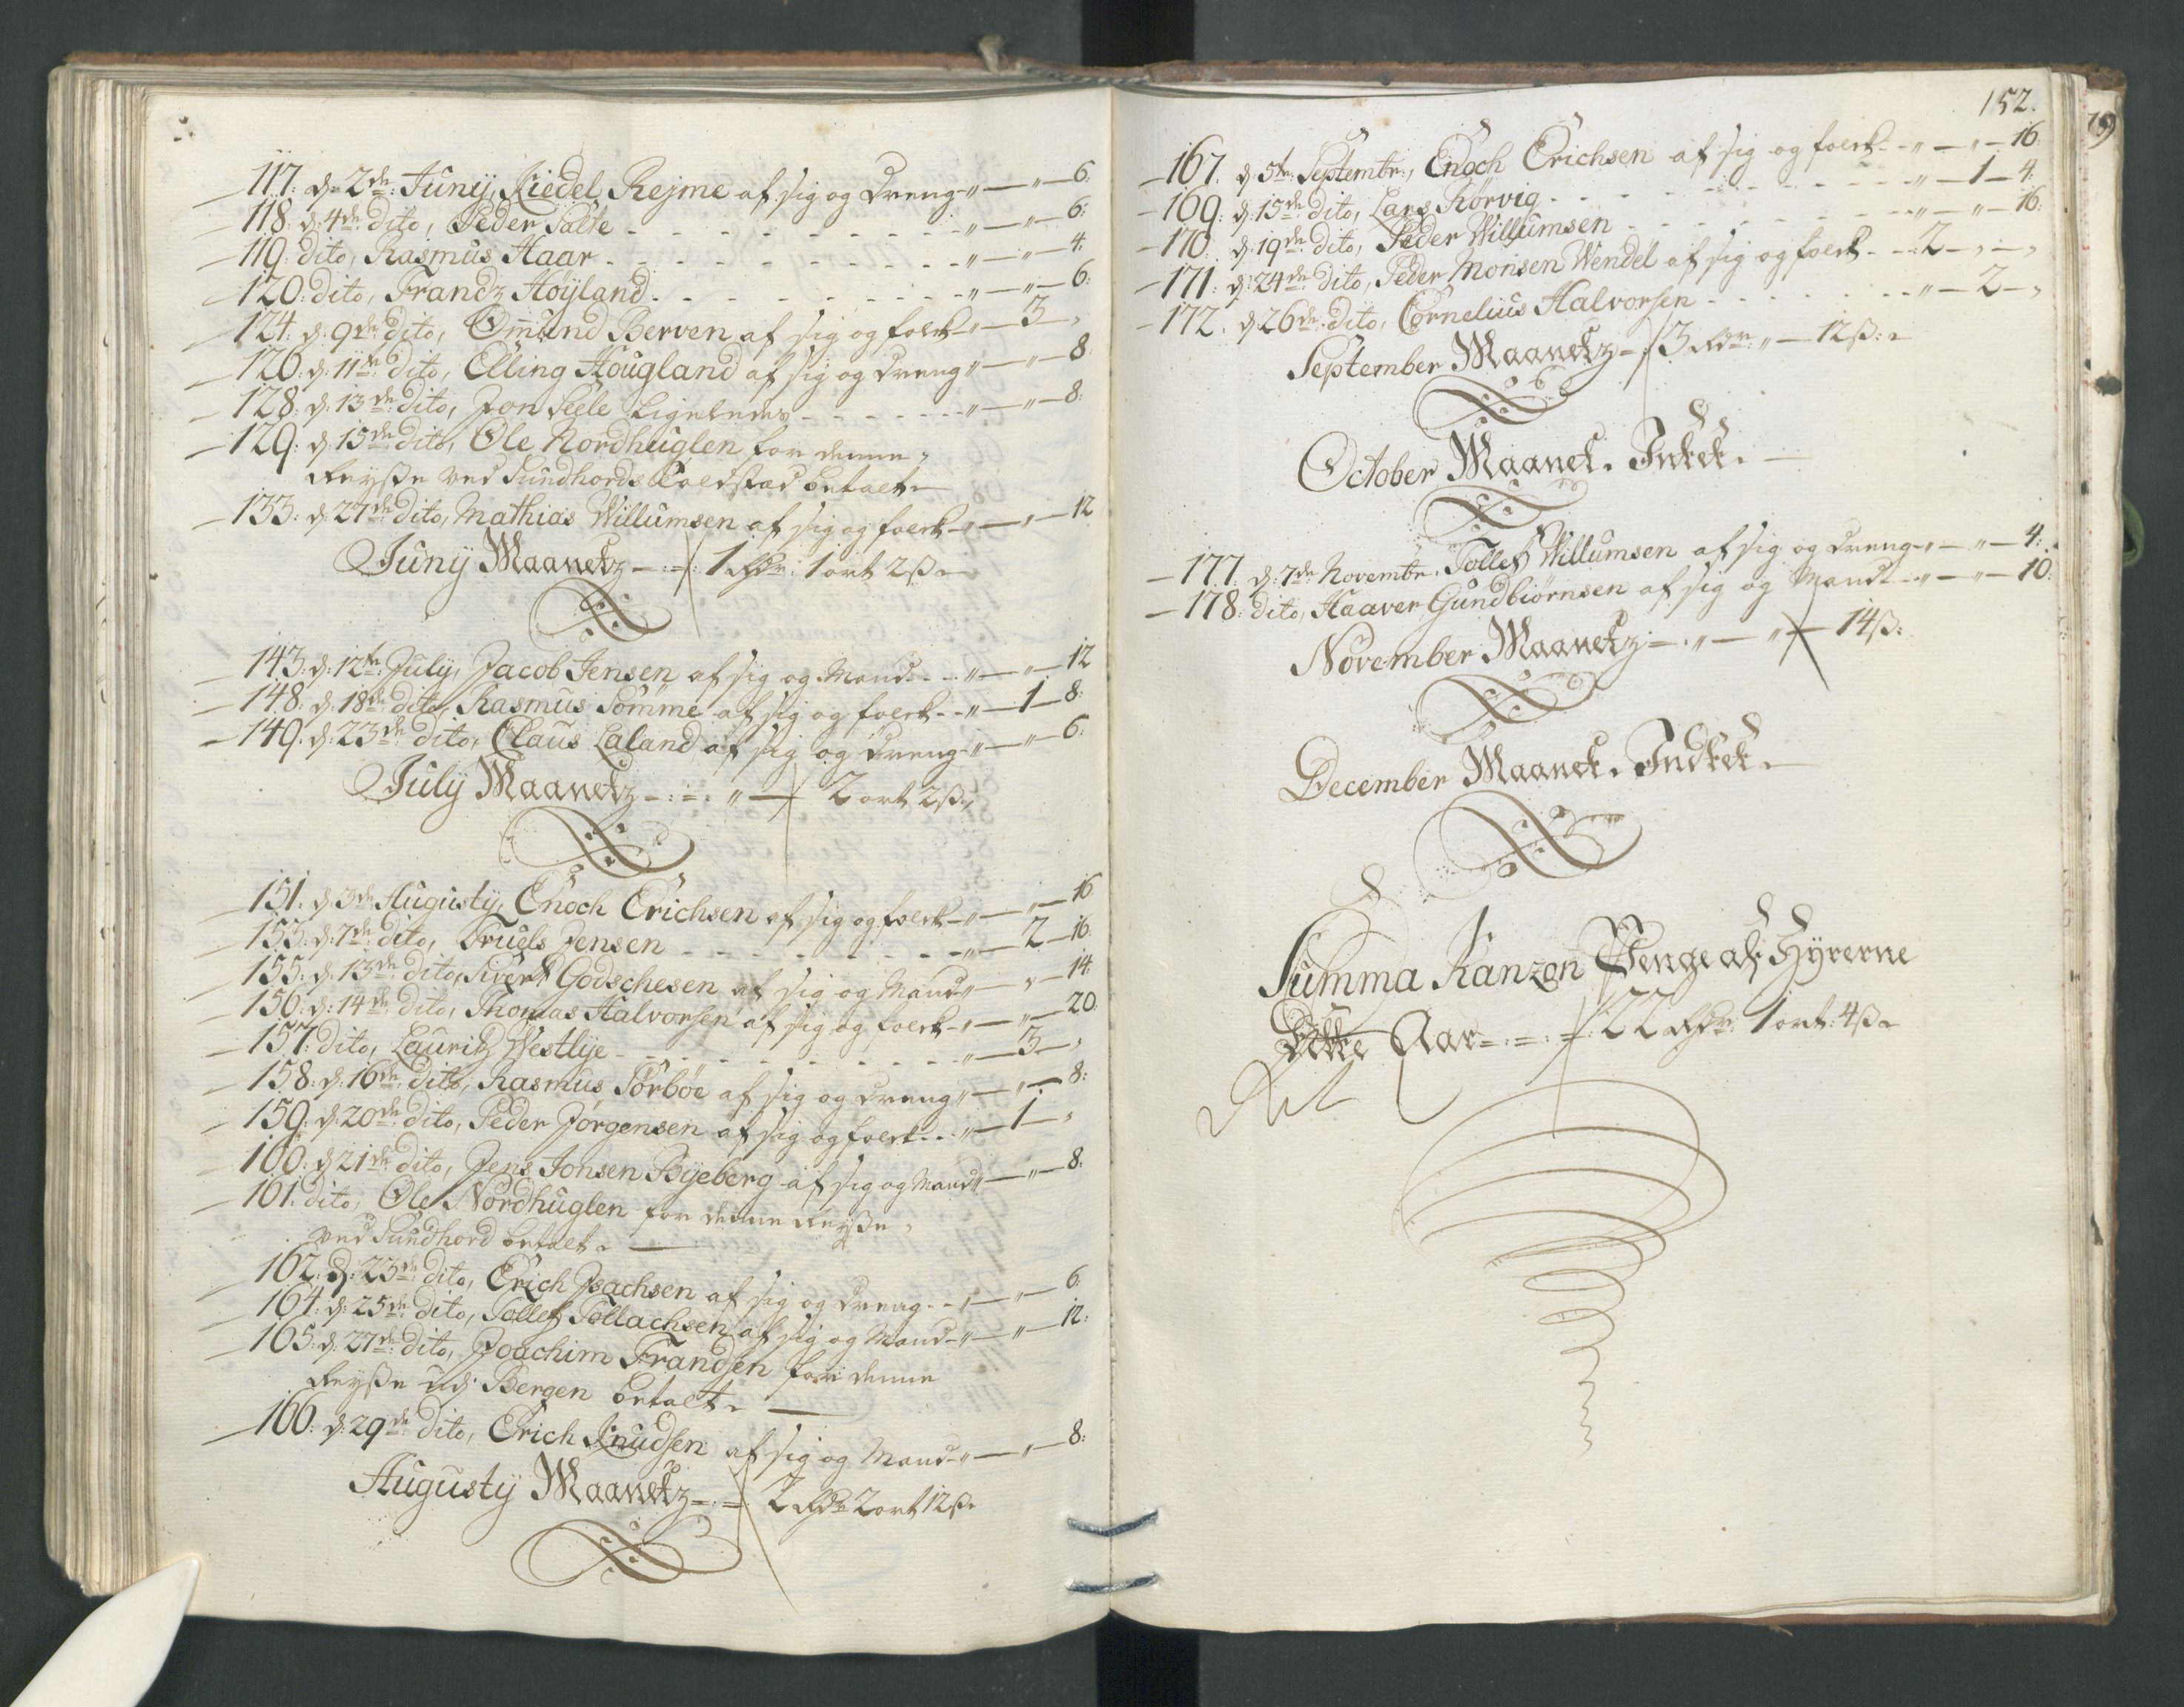 117: d: 2de: Junij, Riedel Rejme af sig og dreng " — " — 6:
118: d: 4de: dito, Peder Salte - - - " — " — 6:
119: dito, Rasmus Haar - - - " — " — 4:
120: dito, Frandz Höÿland - - - " — " — 6:
124: d: 9de: dito, Omund Berven af sig og folck " — 3 — "
126: d: 11te: dito, Elling Hougland af sig og dreng " — " — 8:
128: d: 13de: dito, Jon Seele ligeledes - - - " — " — 8:
129: d: 15de: dito, Ole Nordhuglen for denne
Reyße ved Sundhords Toldsted betalt
133: d: 27de: dito, Mathias Willumsen af sig og folck " — " — 12
Junij Maanetz — 1 Rdr: 1 ort 2 ß
143: d: 12te: July, Jacob Jensen af sig og Mand - - " — " — 12
148: d: 18de: dito, Rasmus Sömme af sig og folck - - " — 1 — 8:
149: d: 23de: dito, Claus Laland af sig og dreng " — " — 6:
July Maanetz - : - : " — 2 ort 2 ß
151: d: 3de: Augusty, Enoch Erichsen af sig og folck " — " — 16
153: d: 7de: dito, Truels Jensen - - - " — 2 — 16
155: d: 13de: dito, Sivert Godschesen af sig og Mand " — " — 14:
156: d: 14de: dito, Thomas Halvorsen af sig og folck " — " — 20:
157: dito, Lauritz Westlye - - - " — 3 — "
158: d: 16de: dito, Rasmus Sörböe af sig og dreng " — " — 8:
159: d: 20de: dito, Peder Jörgensen af sig og folck - - " — 1 — "
160: d: 21de: dito, Jens Jonsen Byeberg af sig og Mand " — " — 8:
161: dito, Ole Nordhuglen for denne Reyße
ved Sundhord betalt
162: d: 23de: dito, Erich Isachsen af sig og dreng - - " — " — 6:
164: d: 25de: dito, Tollef Tollachsen af sig og Mand " — " — 12:
165: d: 27de: dito, Joachim Frandsen for denne
Reyße udj Bergen betalt
166: d: 29de: dito, Erich Knudsen af sig og Mand " — " — 8:
Augusty Maanetz - : - 2 Rdr 2 ort 12 ß
152.
167: d: 5te: Septembr:, Enoch Erichsen af sig og folck - - " — " — 16:
169: d: 15de: dito, Lars Körvig - - - " — 1 — 4:
170: d: 19de: dito, Peder Willumsen - - - " — " — 16:
171: d: 24de: dito, Peder Monsen Wendel af sig og folck - - 2 — " — "
172: d: 26de: dito, Cornelius Halvorsen - - - " — 2 — "
September Maanetz - 3 Rdr: " — 12 ß:
October Maanet. Intet.
177: d: 7de: Novembr: Tollef Willumsen af sig og dreng " — " — 4:
178: dito, Haaver Gundbiörnsen af sig og Mand - - " — " — 10:
November Maanetz - : " — " — 14 ß:
December Maanet. Indtet.
Summa Ranzon Penge af Hyrerne
Dette Aar - : - : - 22 Rdr: 1 ort: 4 ß